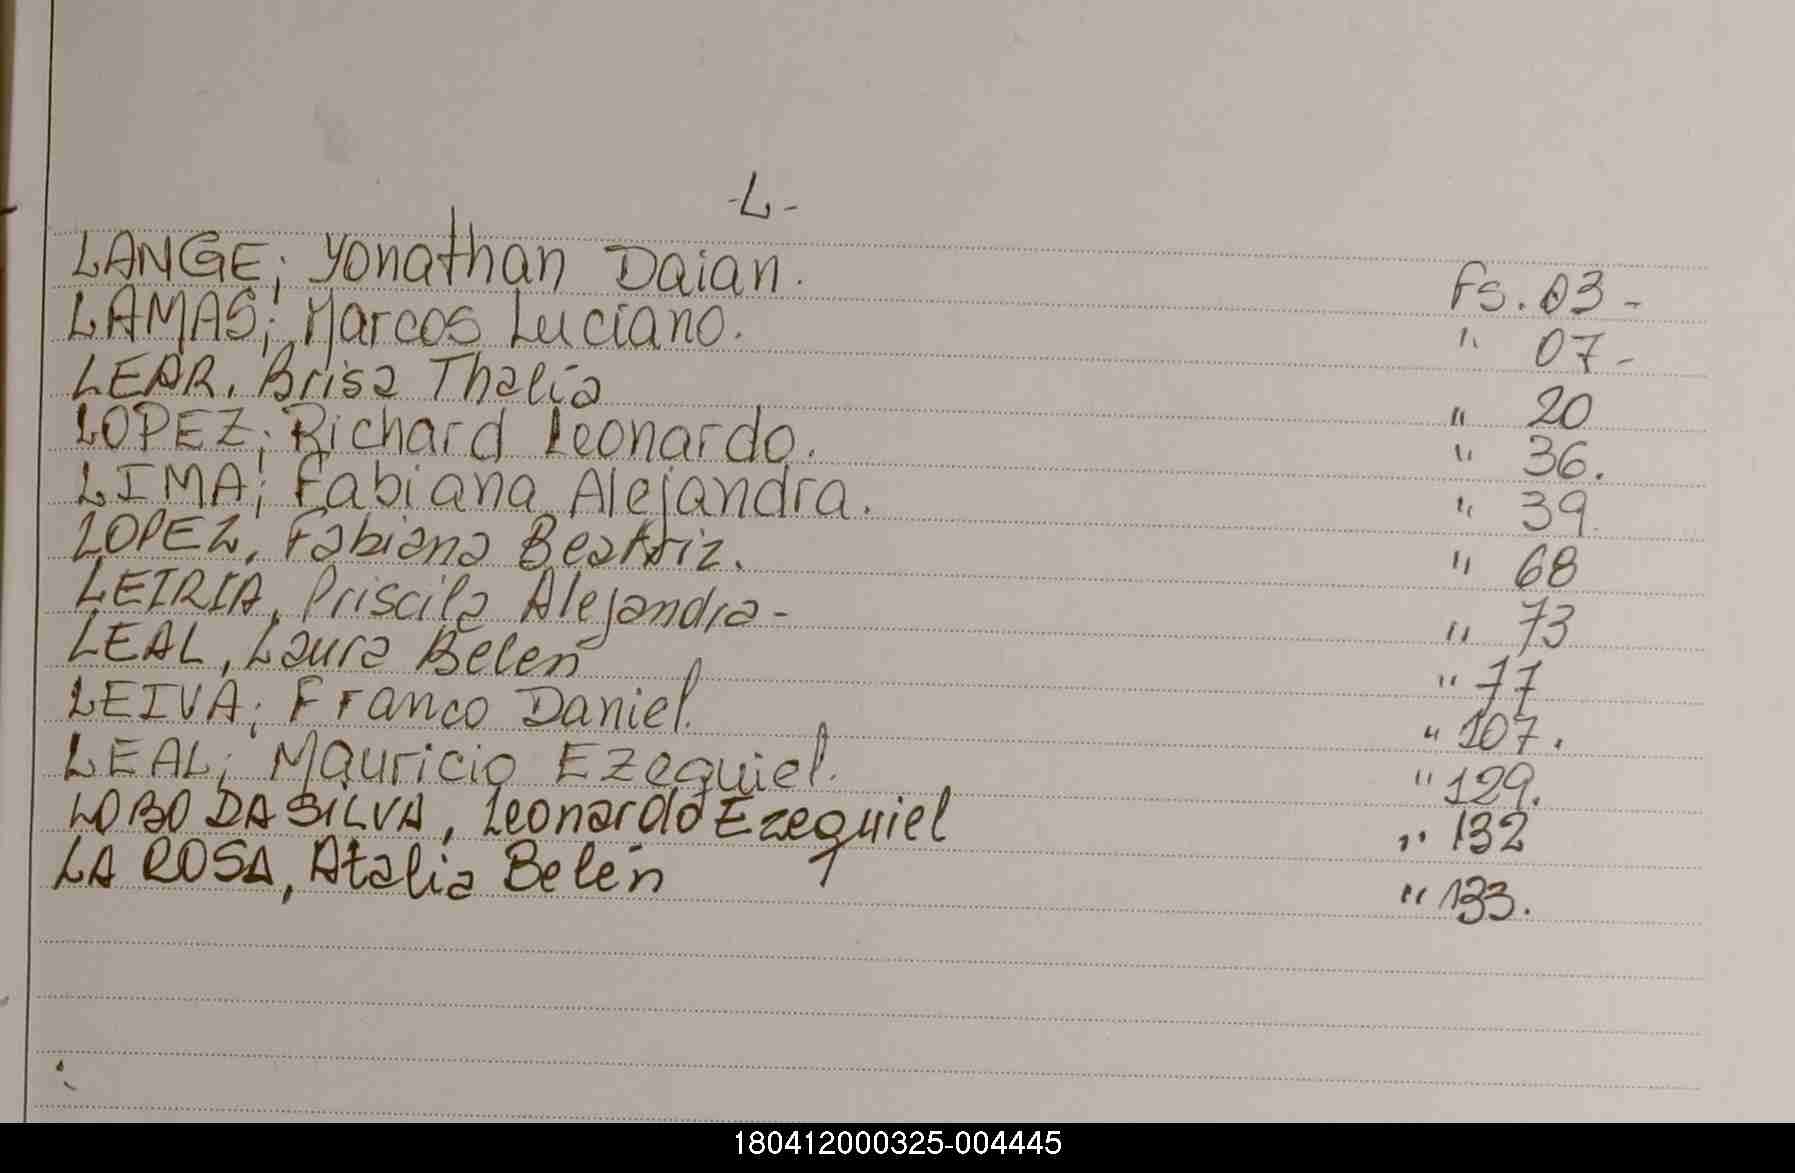 -L-
LANGE; Yonathan Daian. Fs. 03-
LAMAS; Marcos Luciano. " 07-
LEAR, Brisa Thalía " 20
LOPEZ; Richard Leonardo. " 36.
LIMA; Fabiana Alejandra. " 39.
LOPEZ, Fabiana Beatriz. " 68
LEIRIA, Priscila Alejandra- " 73
LEAL, Laura Belén " 77
LEIVA; Franco Daniel. " 107.
LEAL; Mauricio Ezequiel. " 129.
LOBO DA SILVA, Leonardo Ezequiel " 132
LA ROSA, Atalia Belén " 133.
180412000325-004445